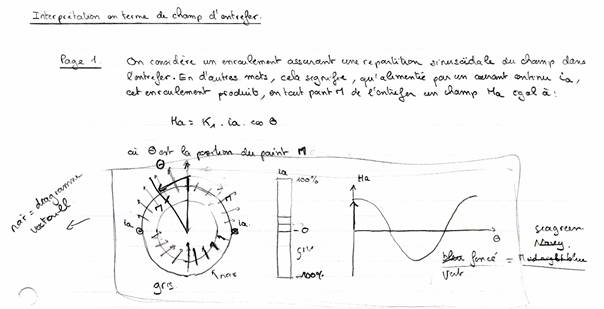 Interprétation en terme de champ d'entrefer.
Page 1. On considère un enroulement assurant une repartition sinusoïdale du champ dans
l'entrefer. En d'autres mots, cela signifie, qu'alimentée par un courant continu ia,
cet enroulement produit, en tout point M de l'entrefer un champ Ha egal à :
Ha = K1 . ia . cos Θ
où Θ est la position du point M.
noir = diagramme
vectoriel
Θ
ia
ia
gris
noir
ia
100%
0
gris
-100%
Ha
Θ
seagreen
Navy
bleu foncé = Midnightblue
Vert